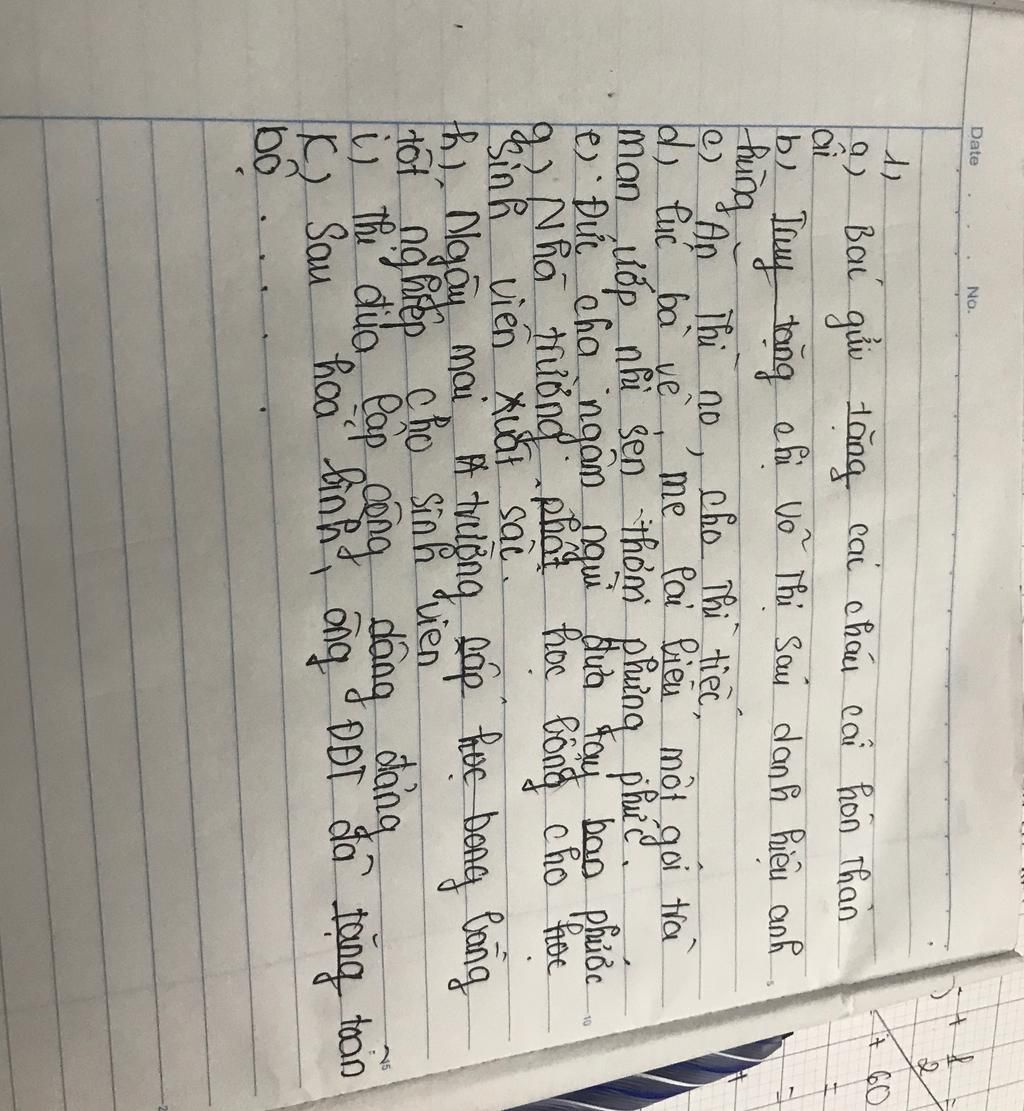 Date
No.
1,
a) Bác gửi tặng các cháu cái hôn thân
ái
b) Truy tặng chị Võ Thị Sáu danh hiệu anh
hùng
c) Ăn thì no, cho thì tiếc,
d) Lúc bà về, mẹ lại biếu một gói trà
mạn ướp nhị sen thơm phưng phức.
e) Đức cha ngậm ngùi đưa tay ban phước
g) Nhà trường phát học bổng cho học
sinh viên xuất sắc.
h) Ngày mai trường cấp học bong bằng
tốt nghiệp cho sinh viên
i) Thi đua lập công dâng đảng
k) Sau hoà bình, ông ĐĐT đã tặng toàn
bộ . . . . .
5
10
15
2
+ 60